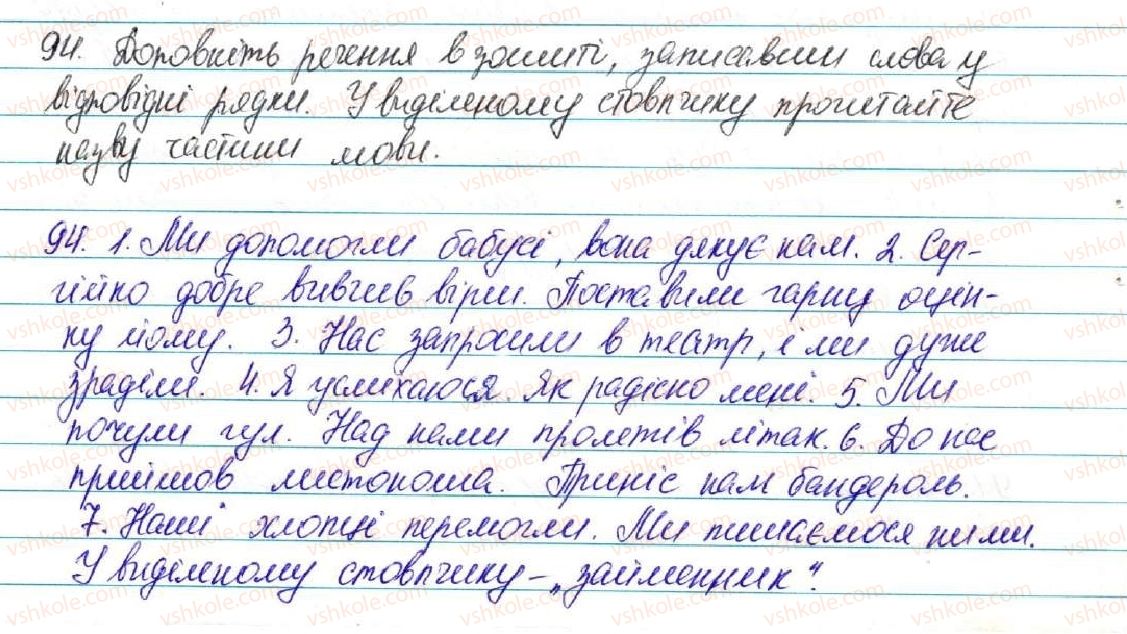 94. Доповніть речення в зошиті, записавши слова у
відповідні рядки. У виділеному стовпчику прочитайте
назву частини мови.
94. 1. Ми допомогли бабусі, вона дякує нам. 2. Сер-
гійко добре вивчив вірш. Поставили гарну оцін-
ку йому. 3. Нас запросили в театр, і ми дуже
зраділи. 4. Я усміхаюся. Як радісно мені. 5. Ми
почули гул. Над нами пролетів літак. 6. До нас
прийшов листоноша. Приніс нам бандероль.
7. Наші хлопці перемогли. Ми пишаємося ними.
У виділеному стовпчику – „займенник".